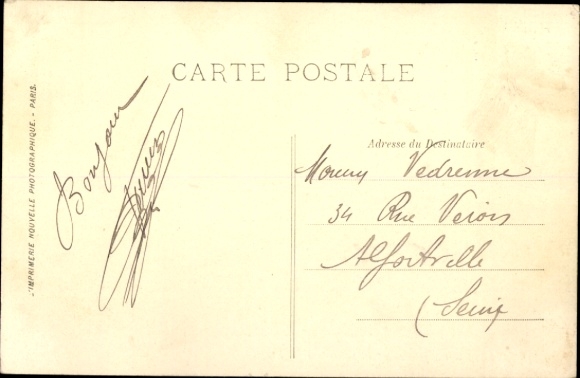 CARTE POSTALE
L'IMPRIMERIE NOUVELLE PHOTOGRAPHIQUE. - PARIS.
Bonjour
Adresse du Destinataire
Vedrenne
34 Rue Véron
Alfortville
(Seine